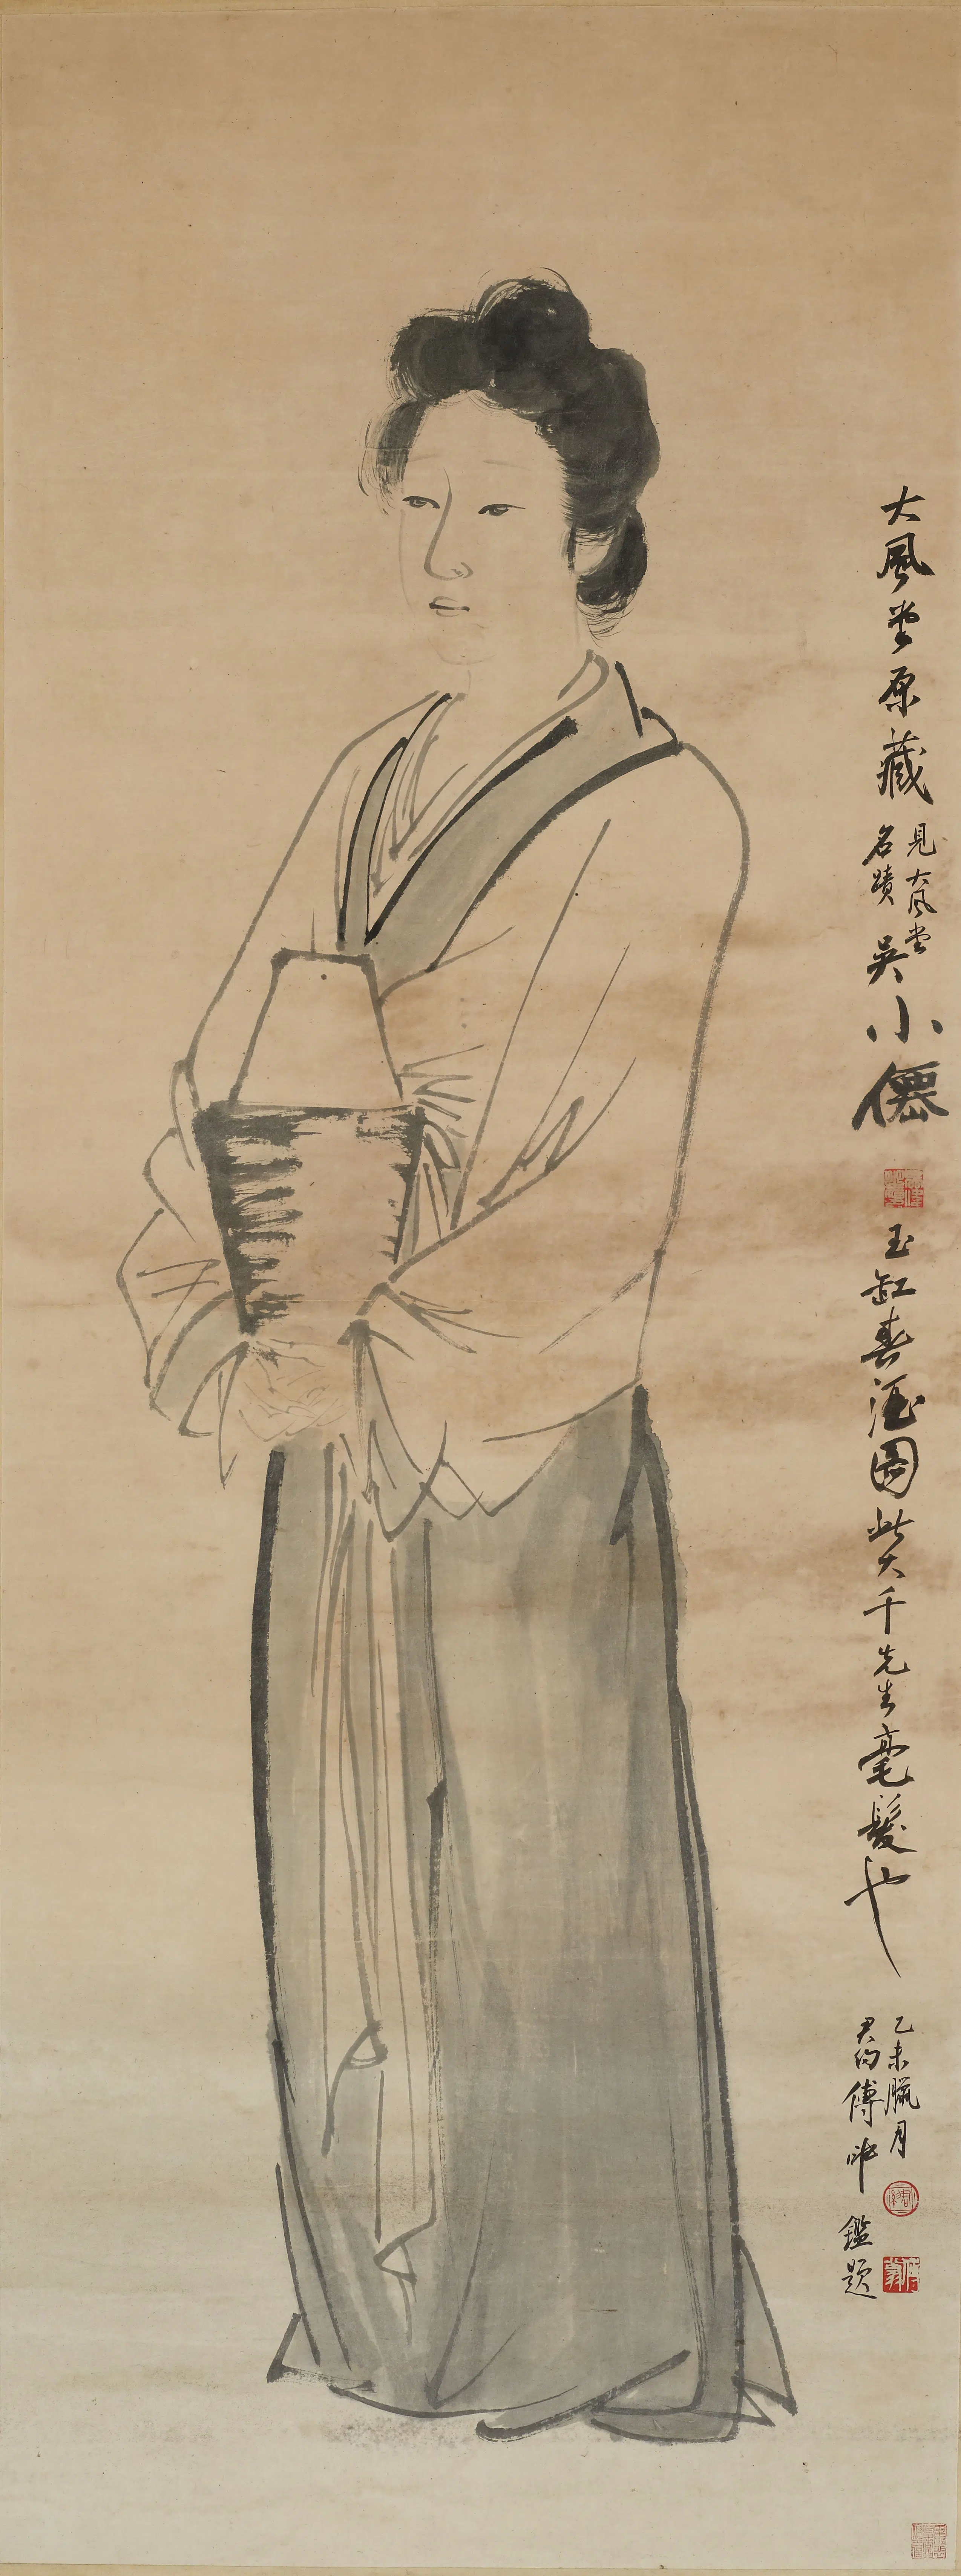 大風堂原藏
見大風堂
名蹟
吳小僊
玉缸春酒圖此大千先生毫髮也
乙未臘月
君約傅
鑑題